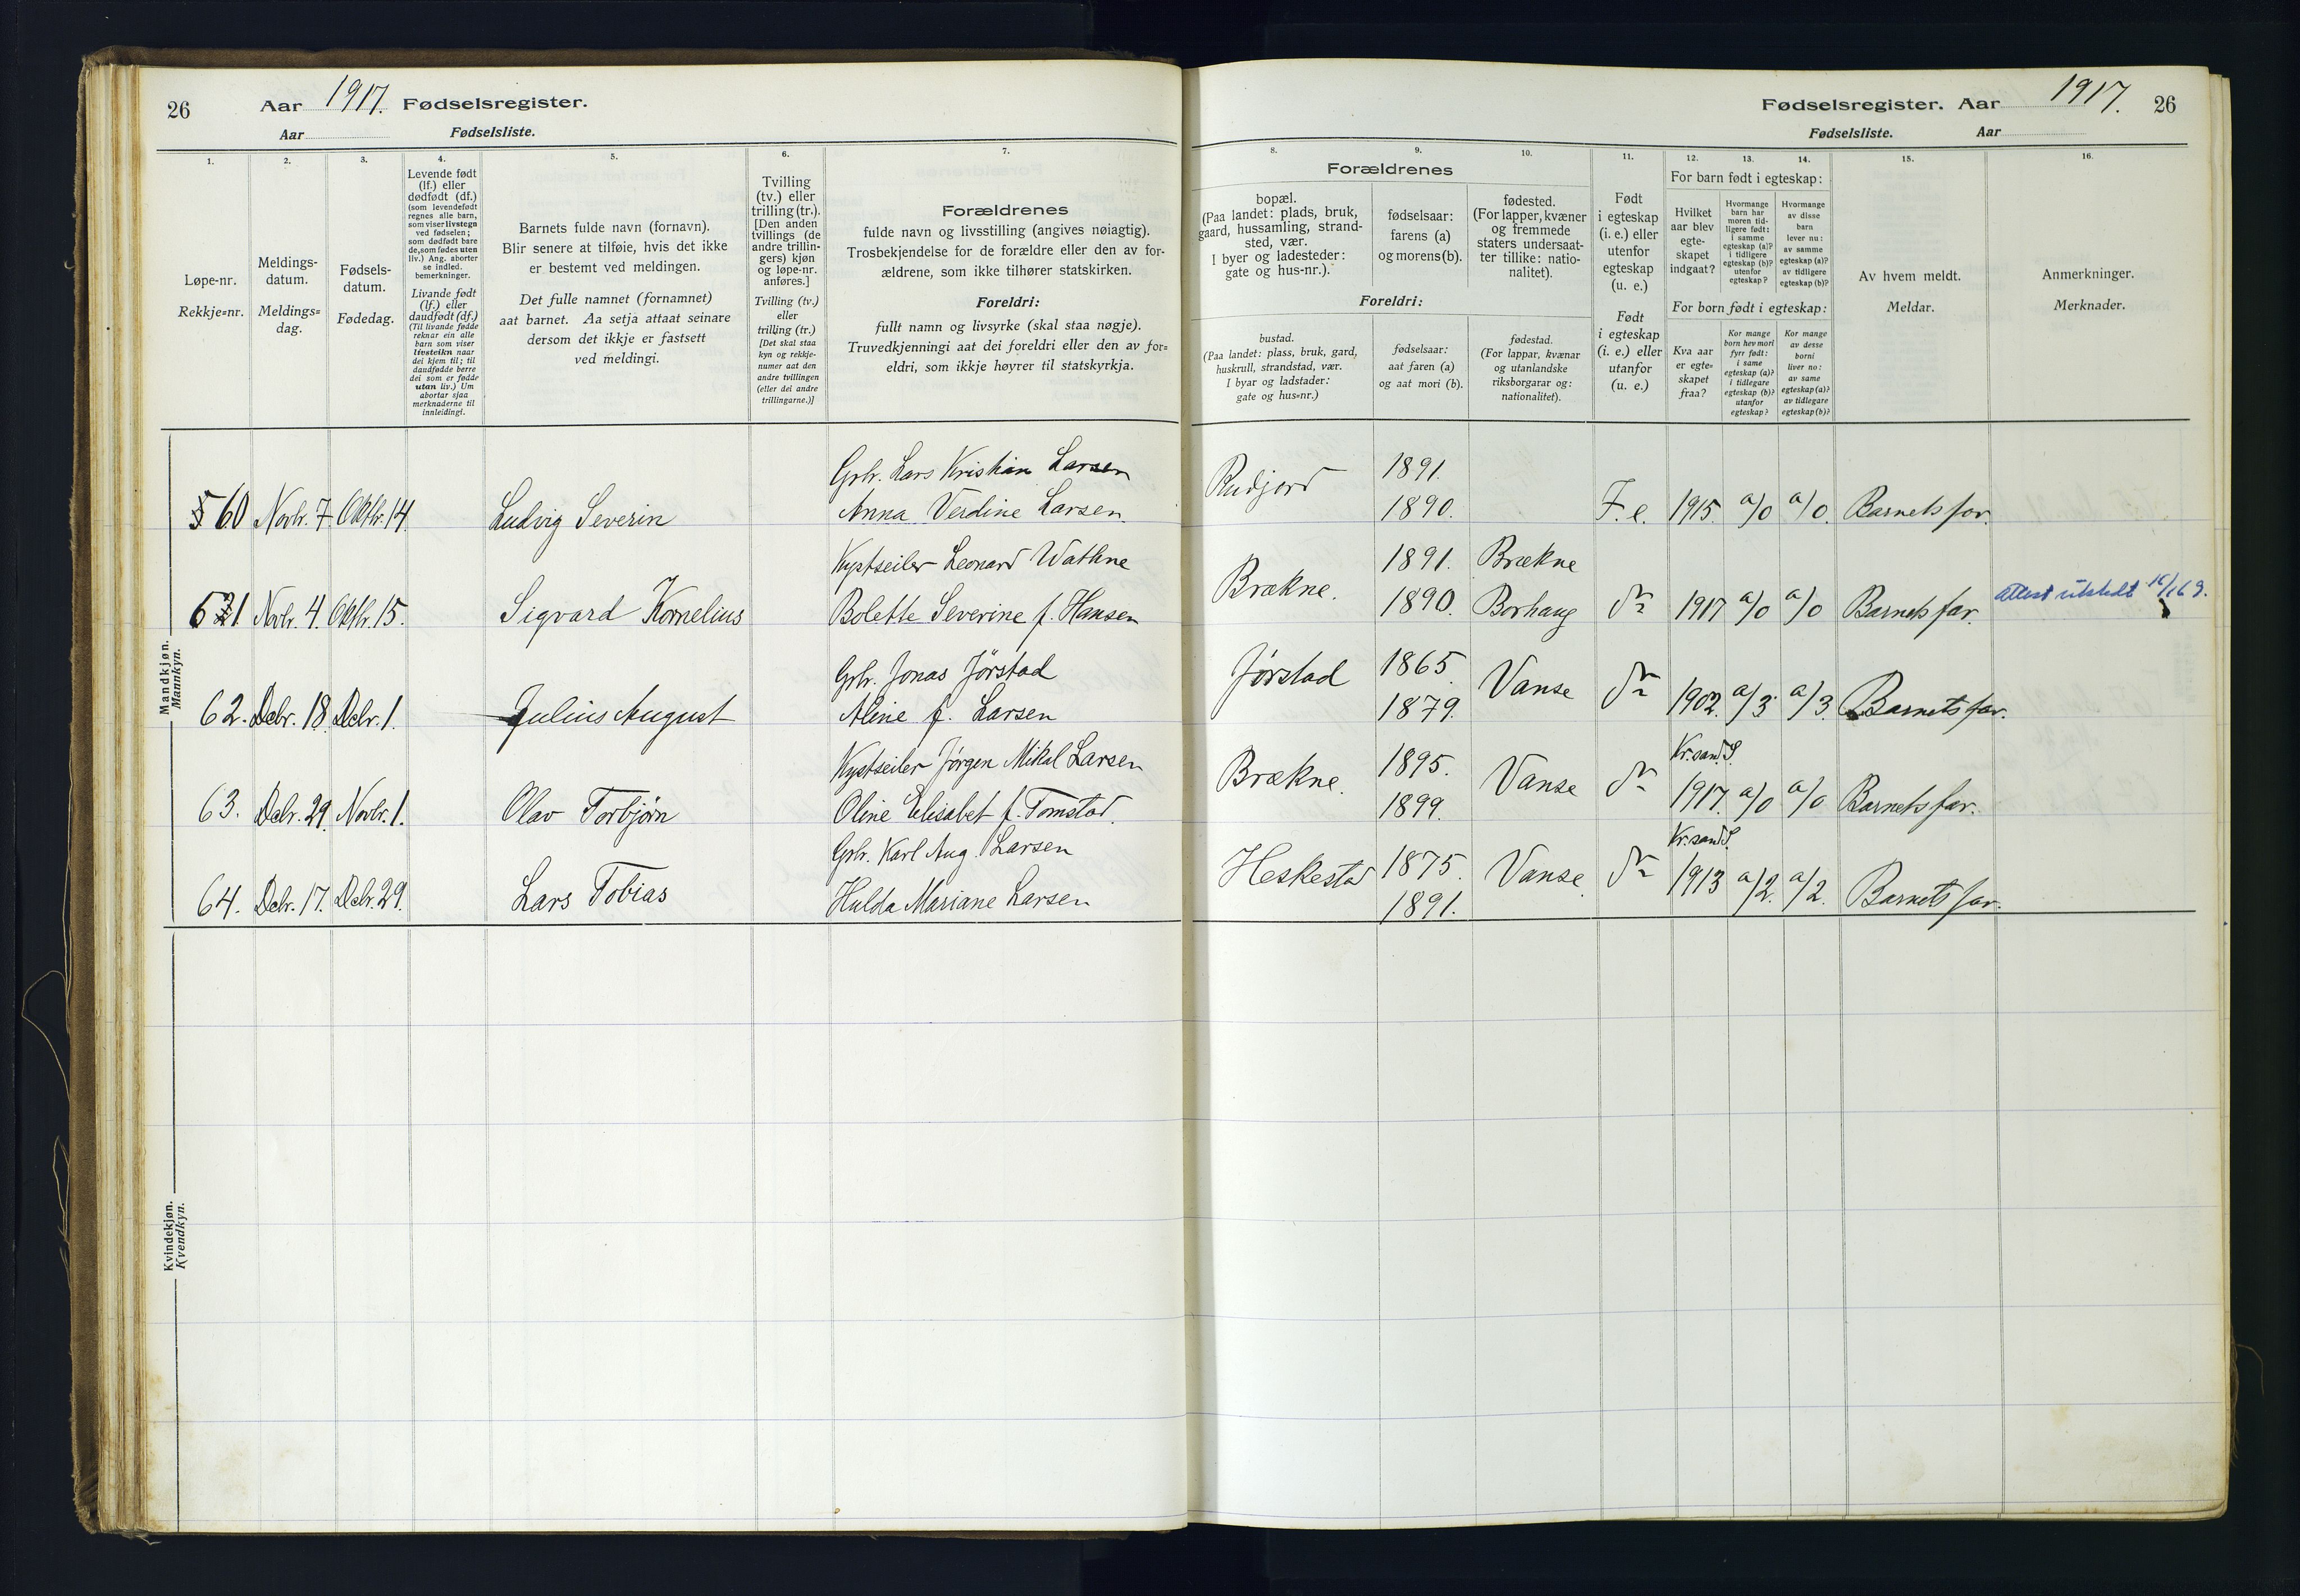 26 Aar 1917. Fødselsregister.
Aar Fødselsliste.
1. 2. 3. 4. 5. 6. 7.
Løpe-nr.
Rekkje=nr.
Meldings-
datum.
Meldings=
dag.
Fødsels-
datum.
Fødedag.
Levende født
(lf.) eller
dødfødt (df.)
(som levendefødt
regnes alle barn,
som viser livstegn
ved fødselen;
som dødfødt bare
de, som fødes uten
liv.) Ang. aborter
se indled.
bemerkninger.
Livande født
(lf.) eller
daudfødt (df.)
(Til livande fødde
reknar ein alle
barn som viser
livsteikn naar
dei kjem til; til
daudfødde berre
dei som er fødde
utan liv.) Um
abortar sjaa
merknaderne til
innleidingi.
Barnets fulde navn (fornavn).
Blir senere at tilføie, hvis det ikke
er bestemt ved meldingen.
Det fulle namnet (fornamnet)
aat barnet. Aa setja attaat seinare
dersom det ikkje er fastsett
ved meldingi.
Tvilling
(tv.) eller
trilling (tr.).
[Den anden
tvillings (de
andre trillin-
gers) kjøn
og løpe-nr.
anføres.]
Tvilling (tv.)
eller
trilling (tr.)
[Det skal staa
kyn og rekkje-
numer aat den
andre tvillingen
(eller dei andre
trillingarne.)]
Forældrenes
fulde navn og livsstilling (angives nøiagtig).
Trosbekjendelse for de forældre eller den av for-
ældrene, som ikke tilhører statskirken.
Foreldri:
fullt namn og livsyrke (skal staa nøgje).
Truvedkjenningi aat dei foreldri eller den av for=
eldri, som ikkje høyrer til statskyrkja.
Mandkjøn.
Mannkyn.
Grbr. Lars Kristian Larsen
60 Novbr. 7. Oktbr. 14. Ludvig Severin Anna Verdine Larsen.
Kystseiler Leonard Wathne
61 Novbr. 4. Oktbr. 15. Sigvard Kornelius Bolette Severine f. Hansen
Grbr. Jonas Jørstad
62. Debr. 18. Debr. 1. Julius August Aline f. Larsen
Kystseiler Jørgen Mikal Larsen
63. Debr. 29. Novbr. 1. Olav Torbjørn Oline Elisabet f. Tomstad.
Grbr. Karl Aug. Larsen
64. Debr. 17. Debr. 29. Lars Tobias Hulda Mariane Larsen
Kvindekjøn.
Kvendkyn.
Fødselsregister. Aar 1917. 26
Fødselsliste. Aar
8. 9. 10. 11. 12. 13. 14. 15. 16.
Forældrenes
bopæl.
(Paa landet: plads, bruk,
gaard, hussamling, strand-
sted, vær.
I byer og ladesteder:
gate og hus-nr.).
fødselsaar:
farens (a)
og morens (b).
fødested.
(For lapper, kvæner
og fremmede
staters undersaat-
ter tillike: natio-
nalitet).
Foreldri:
bustad.
(Paa landet: plass, bruk, gard,
huskrull, strandstad, vær.
I byar og ladstader:
gate og hus=nr.)
fødselsaar:
aat faren (a)
og aat mori (b).
fødestad.
(For lappar, kvænar
og utanlandske
riksborgarar og:
nationalitet).
Født
i egteskap
(i. e.) eller
utenfor
egteskap
(u. e.)
Født
i egteskap
(i. e.) eller
utanfor
(u. e.)
For barn født i egteskap:
Hvilket
aar blev
egte-
skapet
indgaat?
Hvormange
barn har
moren tid-
ligere født:
i samme
egteskap (a)?
i tidligere
egteskap (b)?
utenfor
egteskap?
Hvormange
av disse
barn
lever nu:
av samme
egteskap (a)?
av tidligere
egteskap (b)?
For born født i egteskap:
Kva aar
er egte=
skapet
fraa?
Kor mange
born hev mori
fyrr født:
i same
egteskap (a)?
i tidlegare
egteskap (b)?
utanfor
egteskap?
Kor mange
av desse
borni
liver no:
av same
egteskap (a)?
av tidlegare
egteskap (b)?
Av hvem meldt.
Meldar.
Anmerkninger.
Merknader.
Rudjord 1891.
1890. F. e. 1915. a/0 a/0. Barnets far.
Brækne. 1891. Brækne
1890. Borhaug 1917 a/0 a/0 Barnets far. Attest utstedt
Jørstad 1865. Vanse
1879. 1902. a/3 a/3. Barnets far.
Kr.sand S.
Brækne. 1895. Vanse
1899. 1917. a/0 a/0 Barnets far.
Kr.sand S.
Heskestad 1875. Vanse
1891. 1913 a/2. a/2. Barnets far.